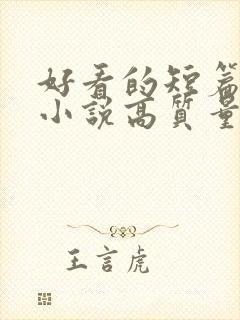 好看的短篇
小说高质量
王言虎